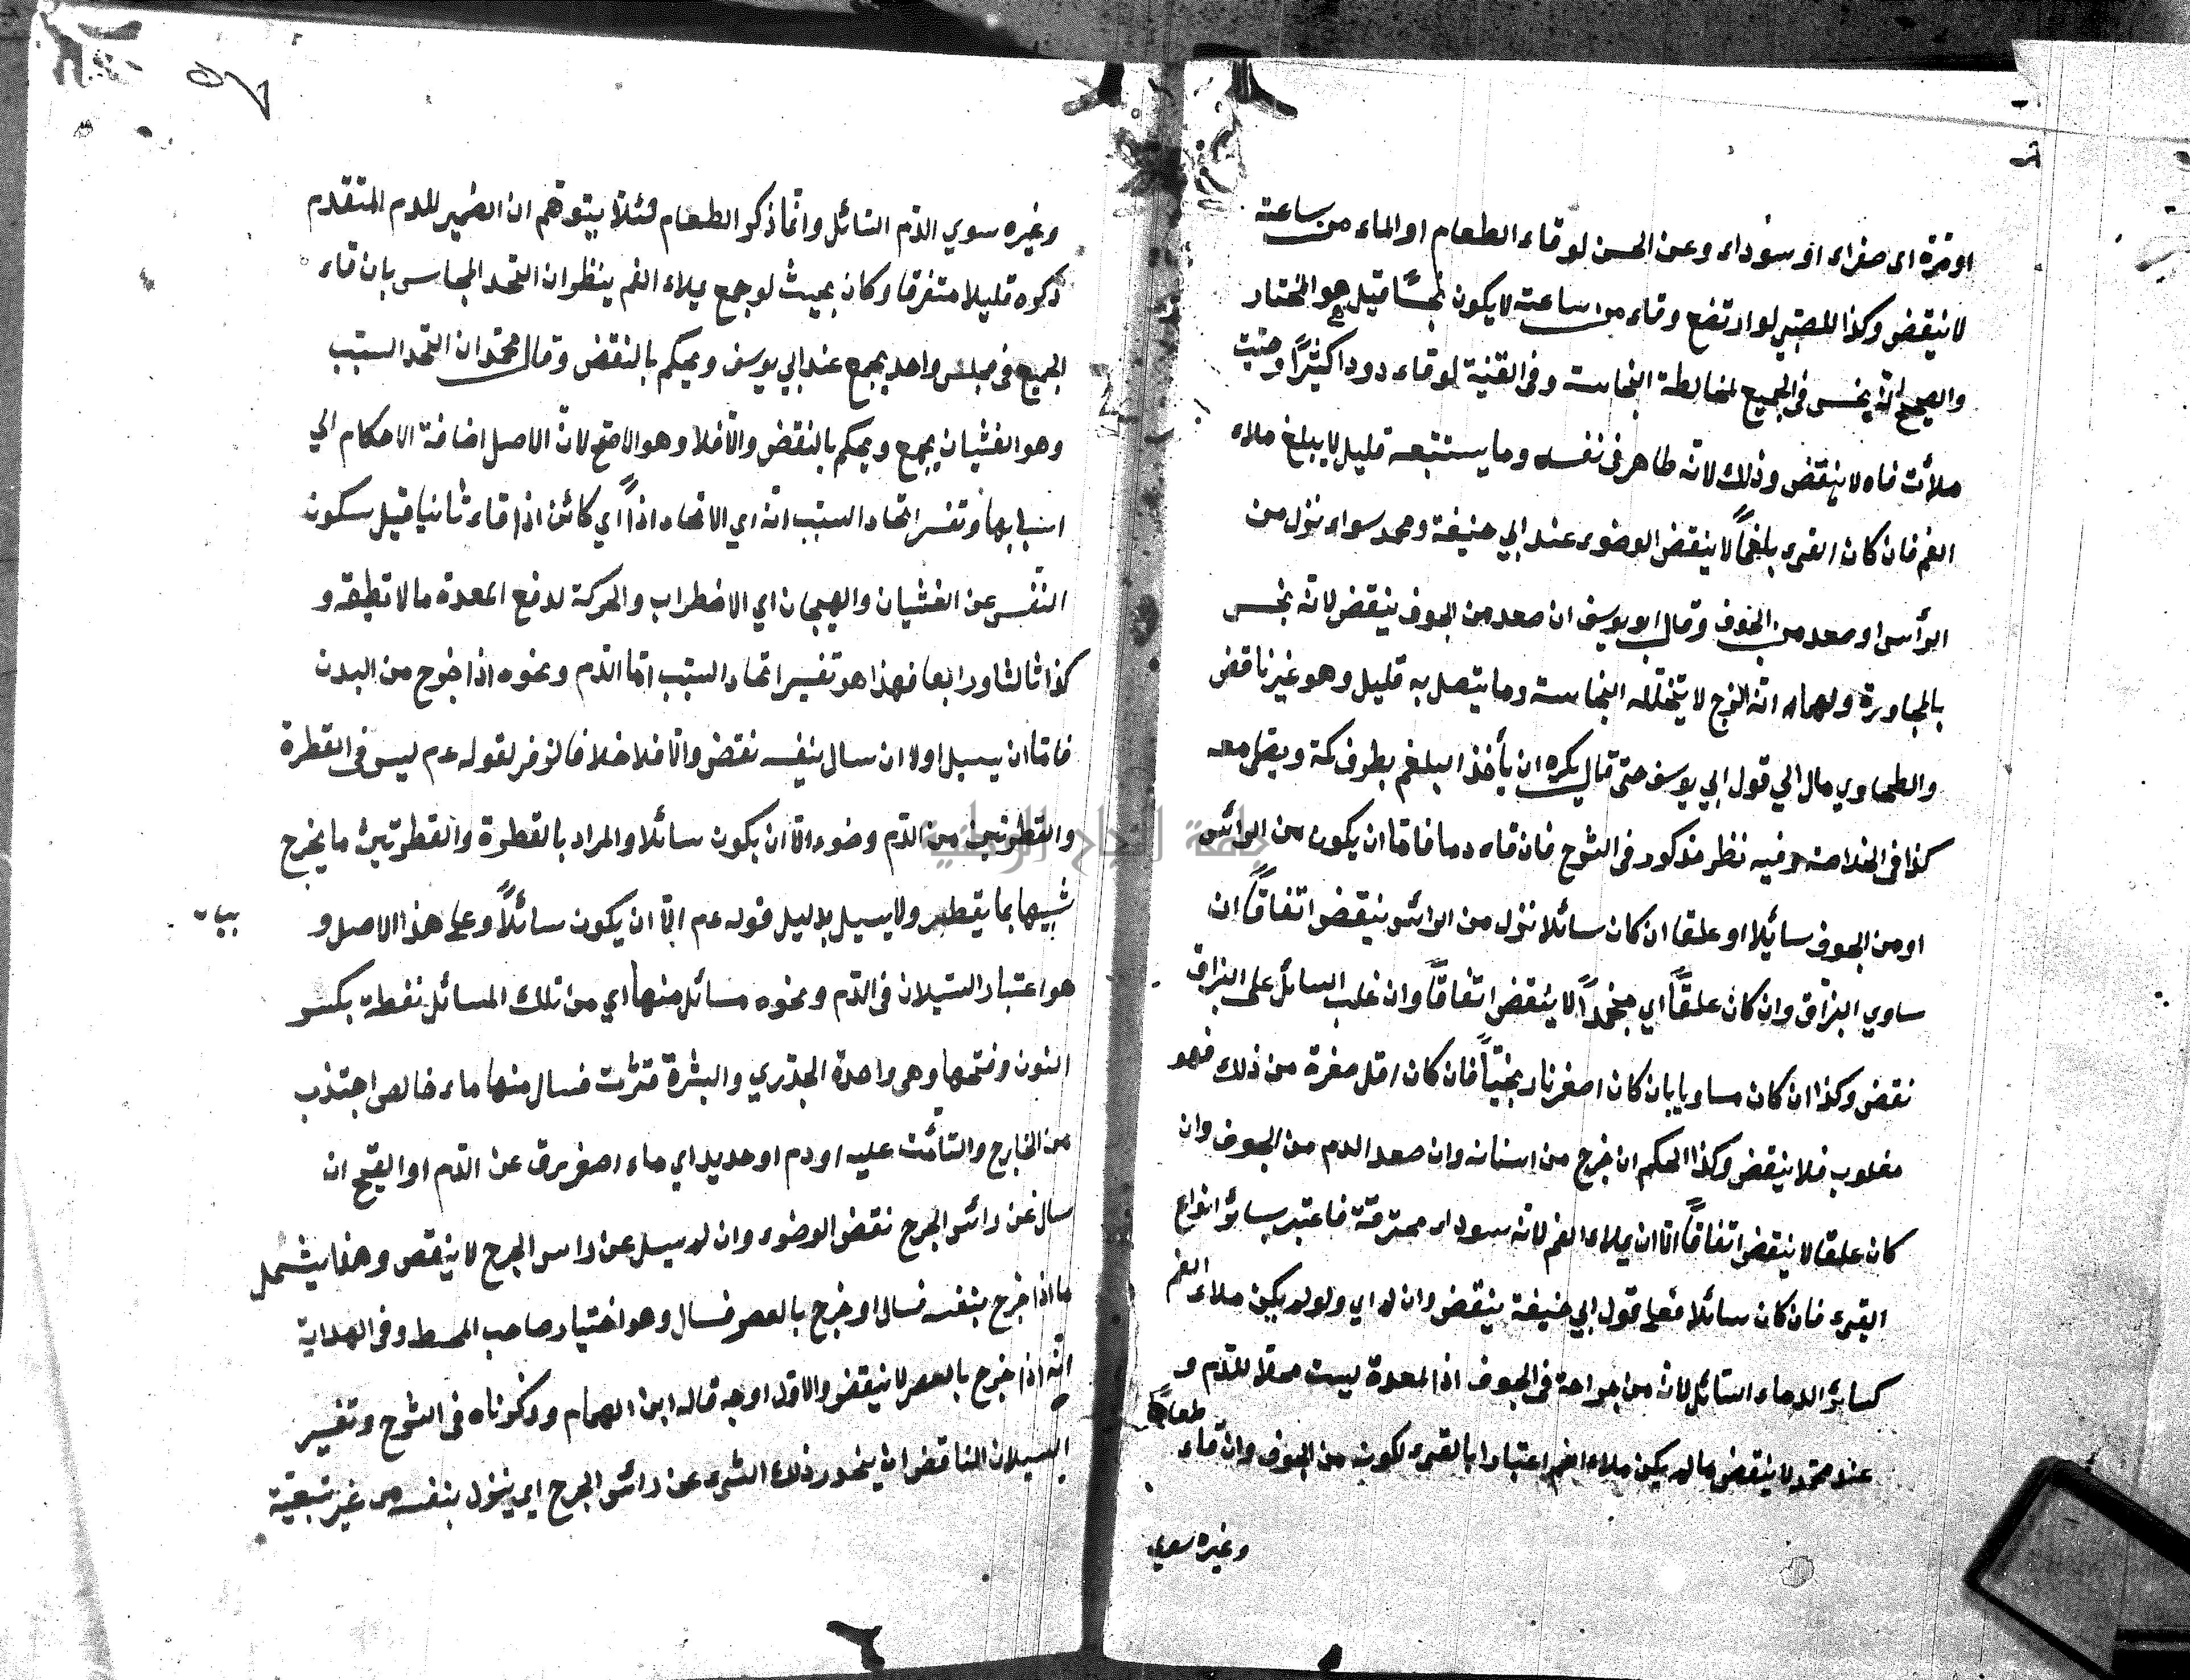 او مرة اي صفراء او سوداء وعن الحسن لو قاء الطعام او الماء من ساعته
لا ينقض وكذا الصبي لو ارتضع وقاء من ساعته لا يكون نجسًا قيل هو المختار
والصحيح انه نجس في الجميع لمخالطة النجاسة وفي القنية لو قاء دودا كثيرًا او حيّة
ملأت فاه لا ينقض وذلك لانه طاهر في نفسه وما يستتبعه قليل لا يبلغ ملاء
الفم فان كان القيء بلغمًا لا ينقض الوضوء عند ابي حنيفة ومحمد سواء نزل من
الرأس او صعد من الجوف وقال ابو يوسف ان صعد من الجوف ينقض لانه نجس
بالمجاورة ولهما انه لزج لا يتخلله النجاسة وما يتصل به قليل وهو غير ناقض
والطحاوي مال الي قول ابي يوسف حتى قال يكره ان يأخذ البلغم بطرف كمه ويصلي معه
كذا في الخلاصة وفيه نظر مذكور في الشرح فان قاء دما فاما ان يكون من الرأس
او من الجوف سائلا او علقا ان كان سائلا نزل من الرأس ينقض اتفاقًا ان
ساوي البزاق وان كان علقًا اي منجمدًا لا ينقض اتفاقًا وان غلب السائل على البزاق
نقض وكذا ان كان مساويا بان كان اصفر نارنجيًا فان كان اقل صفرة من ذلك فهو
مغلوب فلا ينقض وكذا الحكم ان خرج من اسنانه وان صعد الدم من الجوف وان
كان علقا لا ينقض اتفاقًا الا ان يملاء الفم لانه سوداء محترقة فاعتبر بسائر انواع
القيء فان كان سائلا فعلى قول ابي حنيفة ينقض وان لم اي ولو لم يكن ملاء الفم
كسائر الدماء السائل لانه من جراحة في الجوف اذ المعدة ليست محلا للدم و
عند محمد لا ينقض ما لم يكن ملاء الفم اعتبارا بالقيء لكونه من الجوف وان قاء طعامًا
وغيره سوي
وغيره سوي الدم السائل وانما ذكر الطعام لئلا يتوهم ان الضمير للدم المتقدم
ذكره قليلا متفرقا وكان بحيث لو جمع يملاء الفم ينظر ان اتحد المجلس بان قاء
الجميع في مجلس واحد يجمع عند ابي يوسف ويحكم بالنقض وقال محمد ان اتحد السبب
وهو الغثيان يجمع ويحكم بالنقض والا فلا وهو الاصح لان الاصل اضافة الاحكام الي
اسبابها وتفسير اتحاد السبب انه اي الاتحاد اذًا اي كائن اذا قاء ثانيا قبل سكون
النفس عن الغثيان والهيجان اي الاضطراب والحركة لدفع المعدة ما لا تطيقه و
كذا ثالثا ورابعا فهذا هو تفسير اتحاد السبب اما الدم ونحوه اذا خرج من البدن
فاما ان يسيل اولا ان سال بنفسه نقض والا فلا خلافا لزفر لقوله عم ليس في القطرة
والقطرتين من الدم وضوء الا ان يكون سائلا والمراد بالقطرة والقطرتين ما يخرج
شبيها بما يقطر ولا يسيل بدليل قوله عم الا ان يكون سائلًا وعلى هذا الاصل و
هو اعتبار السيلان في الدم ونحوه مسائل منها اي من تلك المسائل نفطة بكسر
النون وفتحها وهي واحدة الجدري والبشرة قشرت فسال منها ماء خالص اجتذب
من الخارج والتأمت عليه او دم او صديد اي ماء اصفر يرق عن الدم او القيح ان
سال عن رأس الجرح نقض الوضوء وان لم يسل عن راس الجرح لا ينقض وهذا يشمل
ما اذا خرج بنفسه فسال او خرج بالعصر فسال وهو اختيار صاحب المحيط وفي الهداية
انه اذا خرج بالعصر لا ينقض والاول اوجه قاله ابن الهمام وذكرناه في الشرح وتفسير
السيلان الناقض ان ينحدر ذلك الشيء عن رأس الجرح اي ينزل بنفسه من غير تبعية